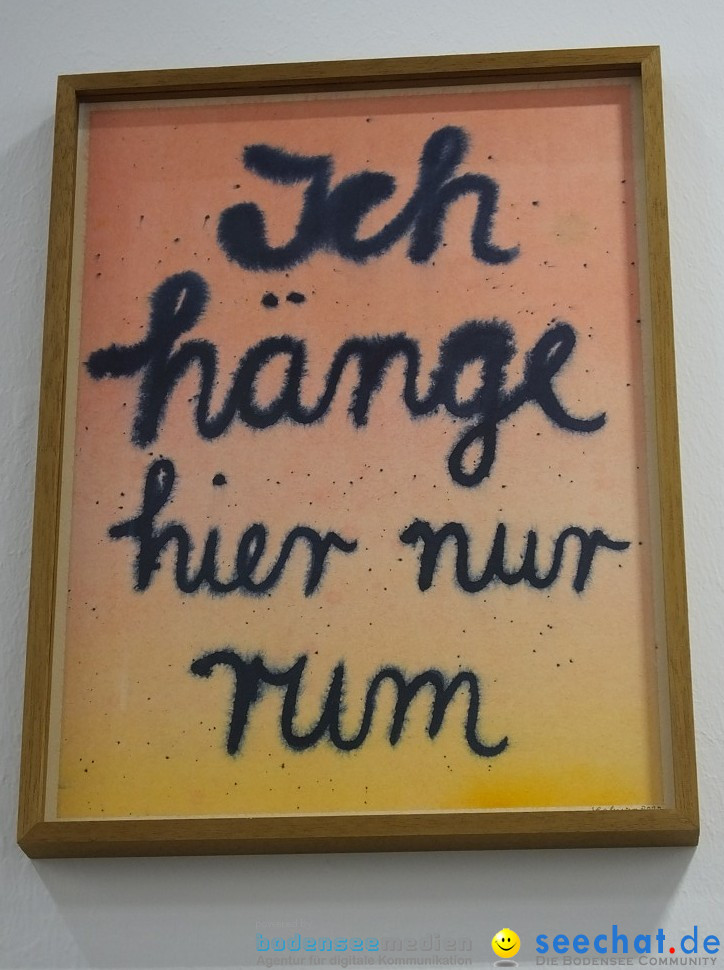 Ich
hänge
hier nur
rum
bodenseemedien
Agentur für digitale Kommunikation
seechat.de
Die Bodensee Community